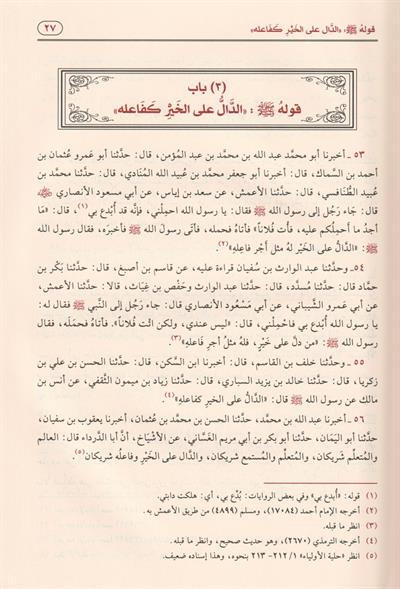 قوله ﷺ: «الدَّال على الخَيْرِ كفَاعله»
٢٧
(٣) باب
قولهُ ﷺ : «الدَّالُّ على الخَيْرِ كَفَاعله»
٥٣ ـ أخبرنا أبو محمَّد عبد الله بن محمَّد بن عبد المؤمن، قال: حدَّثنا أبو عمرو عُثمان بن
أحمد بن السَّماك، قال: أخبرنا أبو جعفر محمَّد بن عُبيد الله المُنَادي، قال: حدَّثنا محمَّد بن
عُبيد الطَّنافسي، قال: حدَّثنا الأعمش، عن سعد بن إياس، عن أبي مسعود الأنصاري ﷺ
قال: جَاء رَجُل إلى رسول الله ﷺ فقال: يا رسول الله احملني، فإنَّه قد أُبْدع بي(١)، قال: «مَا
أجدُ ما أحملُكم عليه، فأت فُلاناً» فأتاهُ فحمله، فأتَى رسول الله ﷺ فأخبرَه، فقال رسول الله
ﷺ: «الدَّال على الخَيْر لهُ مثل أجْر فاعلِهِ»(٢).
٥٤ ـ وحدَّثنا عبد الوارث بن سُفيان قراءة عليه، عن قاسم بن أصبغ، قال: حدَّثنا بَكْر بن
حمَّاد قال: حدَّثنا مُسدَّد، قال: حدَّثنا عبد الوارث وحَفْص بن غِيَاث، قالا: حدَّثنا الأعمش،
عن أبي عَمرو الشَّيباني، عن أبي مَسْعُود الأنصاري قال: جاء رَجل إلى النَّبي ﷺ فقال له:
يا رسول الله أُبْدع بي فاحْمِلْني، قال: «ليس عندي، ولكن ائت فُلاناً». فأتاهُ فحمَلَه، فقال
رسول الله ﷺ: «من دلَّ على خَيْرٍ، فلهُ مثلُ أجْرِ فَاعلهِ»(٣).
٥٥ ـ وحدَّثنا خلف بن القاسم، قال: أخبرنا ابن السَّكن، قال: حدَّثنا الحسن بن علي بن
زكريا، قال: حدَّثنا خالد بن يزيد السياري، قال: حدَّثنا زياد بن ميمون الثَّقفي، عن أنس بن
مالك عن رسول الله ﷺ قال: «الدَّال على الخير كفاعله»(٤).
٥٦ ـ أخبرنا عبد الله بن محمَّد، حدَّثنا الحسن بن محمَّد بن عُثمان، أخبرنا يعقوب بن سفيان،
حدَّثنا أبو اليَمَان، حدَّثنا أبو بكر بن أبي مريم الغَسَّاني، عن الأشْيَاخ، أنَّ أبا الدَّرداء قال: العالم
والمتعلِّم شَريكان، والمُتعلِّم والمُستمع شريكان، والدَّال على الخَيْر وفاعلُه شريكان(٥).
(١) قوله: «أُبدع بي» وفي بعض الروايات: بُدِّع بي، أي: هلكت دابتي.
(٢) أخرجه الإمام أحمد (١٧٠٨٤)، ومسلم (٤٨٩٩) من طريق الأعمش به.
(٣) انظر ما قبله.
(٤) أخرجه الترمذي (٢٦٧٠)، وهو حديث صحيح، وانظر ما قبله.
(٥) انظر «حلية الأولياء» ١/ ٢١٢- ٢١٣ بنحوه، وهذا إسناده ضعيف.